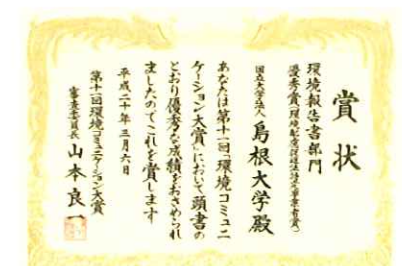 賞状
環境報告書部門
優秀賞(環境配慮促進法特定事業者賞)
国立大学法人 島根大学殿
あなたは第十一回「環境コミュニ
ケーション大賞」において頭書の
とおり優秀な成績をおさめられ
ましたのでこれを賞します
平成二十年三月六日
第十一回環境コミュニケーション大賞
審査委員長 山本良一